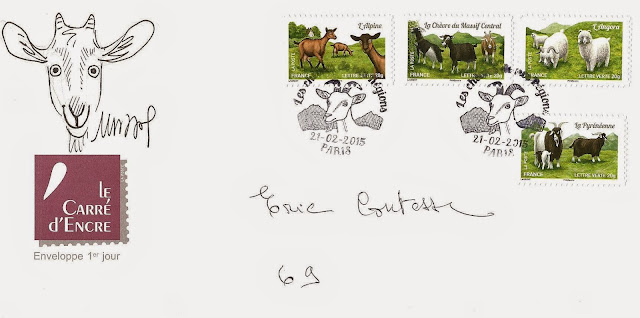 l'Alpine
LA POSTE
FRANCE LETTRE VERTE 20g
La Chèvre du Massif Central
LA POSTE
FRANCE LETTRE VERTE 20g
l'Angora
LA POSTE
FRANCE LETTRE VERTE 20g
Les chèvres de nos régions
21-02-2015
PARIS
Les chèvres de nos régions
21-02-2015
PARIS
La Pyrénéenne
LA POSTE
FRANCE LETTRE VERTE 20g
LE
CARRÉ
D'ENCRE
Enveloppe 1er jour
Eric Contesse
69